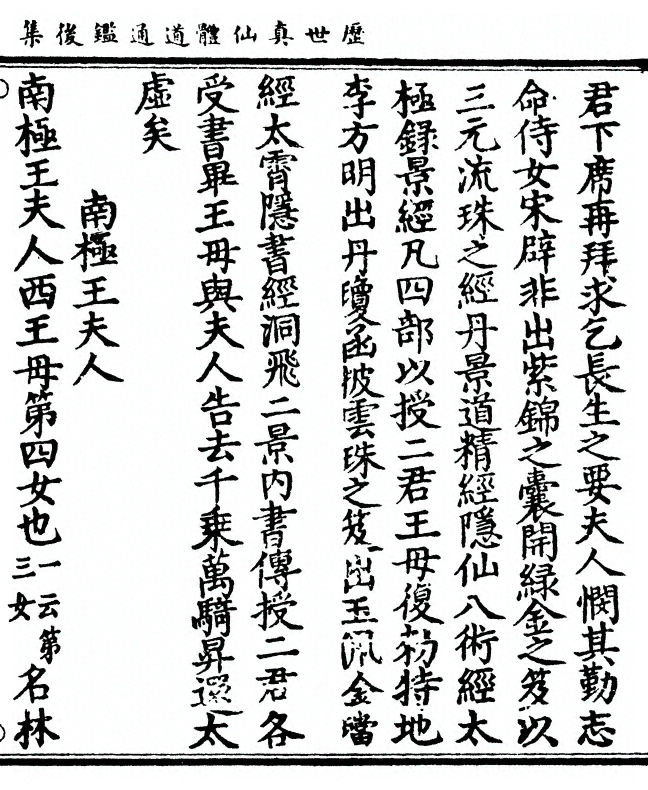 歷世真仙體道通鑑後集
君下席再拜求乞長生之要夫人憫其勤志
命侍女宋辟非出紫錦之囊開綠金之笈以
三元流珠之經丹景道精經隱仙八術經太
極錄景經凡四部以授二君王毋復勑特地
李方明出丹瓊函披雲珠之笈出玉佩金璫
經太霄隱書經洞飛二景內書傳授二君各
受書畢王毋與夫人告去千乘萬騎昇還太
虛矣
南極王夫人
南極王夫人西王毋第四女也一云第三女名林